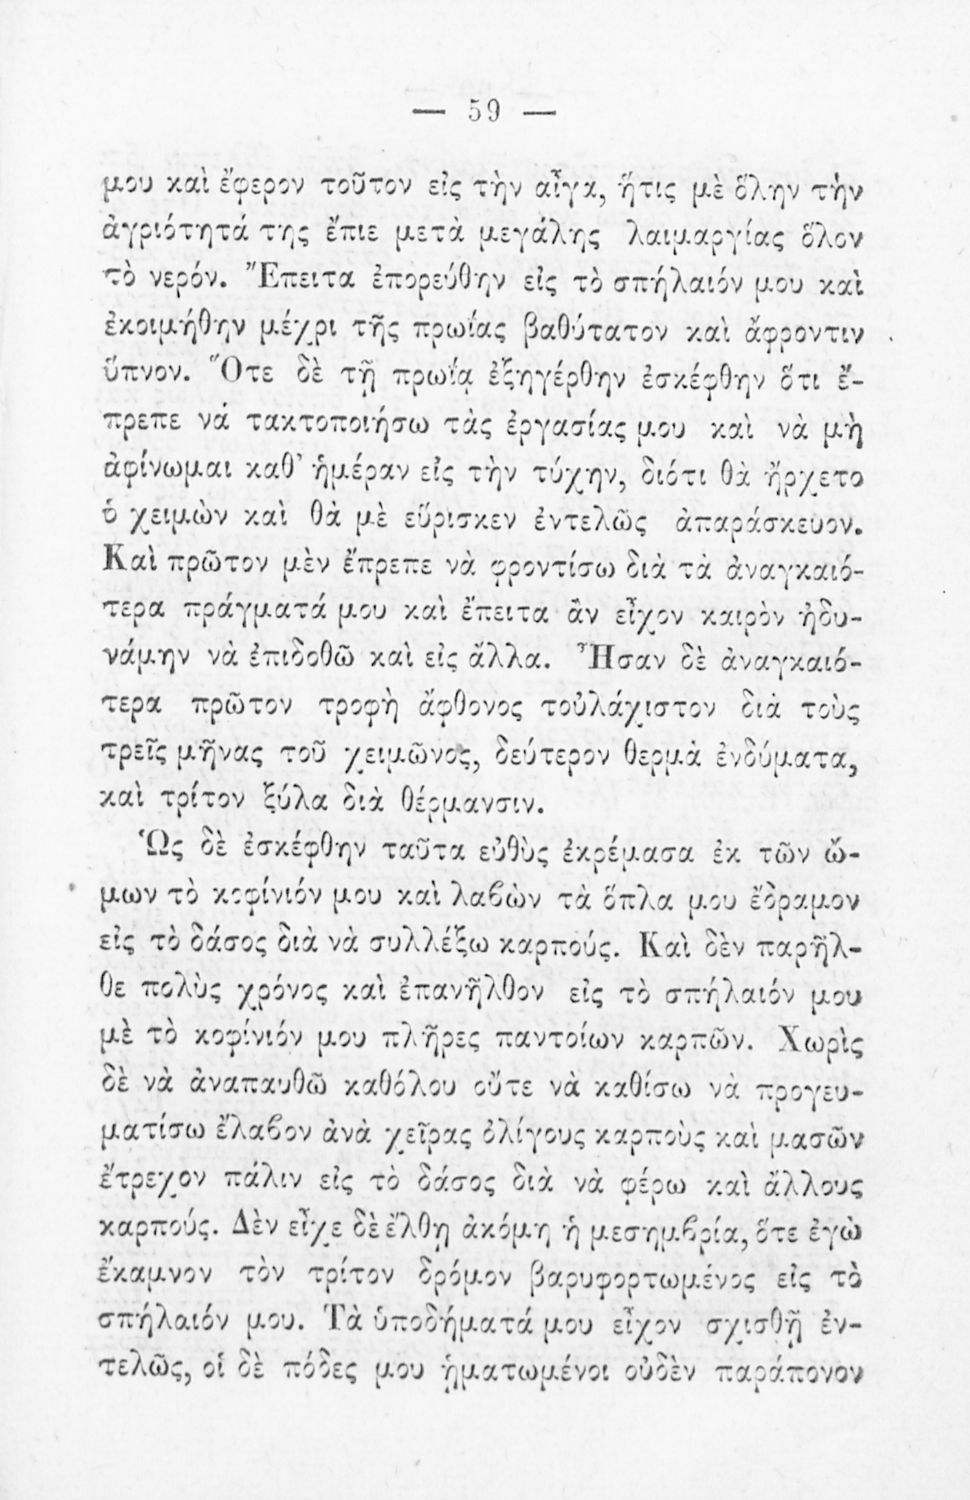 — 59 —
μου καὶ ἔφερον τοῦτον εἰς τὴν αἶγα, ἥτις μὲ ὅλην τὴν
ἀγριότητά της ἔπιε μετὰ μεγάλης λαιμαργίας ὅλον
τὸ νερόν. Ἔπειτα ἐπορεύθην εἰς τὸ σπήλαιόν μου καὶ
ἐκοιμήθην μέχρι τῆς πρωΐας βαθύτατον καὶ ἄφροντιν
ὕπνον. Ὅτε δὲ τῇ πρωΐᾳ ἐξηγέρθην ἐσκέφθην ὅτι ἔ-
πρεπε νά τακτοποιήσω τὰς ἐργασίας μου καὶ νὰ μὴ
ἀφίνωμαι καθ' ἡμέραν εἰς τὴν τύχην, διότι θὰ ἤρχετο
ὁ χειμὼν καὶ θὰ μὲ εὕρισκεν ἐντελῶς ἀπαράσκευον.
Καὶ πρῶτον μὲν ἔπρεπε νὰ φροντίσω διὰ τὰ ἀναγκαιό-
τερα πράγματά μου καὶ ἔπειτα ἂν εἶχον καιρὸν ἠδυ-
νάμην νὰ ἐπιδοθῶ καὶ εἰς ἄλλα. Ἦσαν δὲ ἀναγκαιό-
τερα πρῶτον τροφὴ ἄφθονος τοὐλάχιστον διὰ τοὺς
τρεῖς μῆνας τοῦ χειμῶνος, δεύτερον θερμὰ ἐνδύματα,
καὶ τρίτον ξύλα διὰ θέρμανσιν.
Ὡς δὲ ἐσκέφθην ταῦτα εὐθὺς ἐκρέμασα ἐκ τῶν ὤ-
μων τὸ κοφίνιόν μου καὶ λαβὼν τὰ ὅπλα μου ἔδραμον
εἰς τὸ δάσος διὰ νὰ συλλέξω καρπούς. Καὶ δὲν παρῆλ-
θε πολὺς χρόνος καὶ ἐπανῆλθον εἰς τὸ σπήλαιόν μου
μὲ τὸ κοφίνιόν μου πλῆρες παντοίων καρπῶν. Χωρὶς
δὲ νὰ ἀναπαυθῶ καθόλου οὔτε νὰ καθίσω νὰ προγευ-
ματίσω ἔλαβον ἀνὰ χεῖρας ὀλίγους καρποὺς καὶ μασῶν
ἔτρεχον πάλιν εἰς τὸ δάσος διὰ νὰ φέρω καὶ ἄλλους
καρπούς. Δὲν εἶχε δὲ ἔλθῃ ἀκόμη ἡ μεσημβρία, ὅτε ἐγὼ
ἔκαμνον τὸν τρίτον δρόμον βαρυφορτωμένος εἰς τὸ
σπήλαιόν μου. Τὰ ὑποδήματά μου εἶχον σχισθῇ ἐν-
τελῶς, οἱ δὲ πόδες μου ᾑματωμένοι οὐδὲν παράπονον